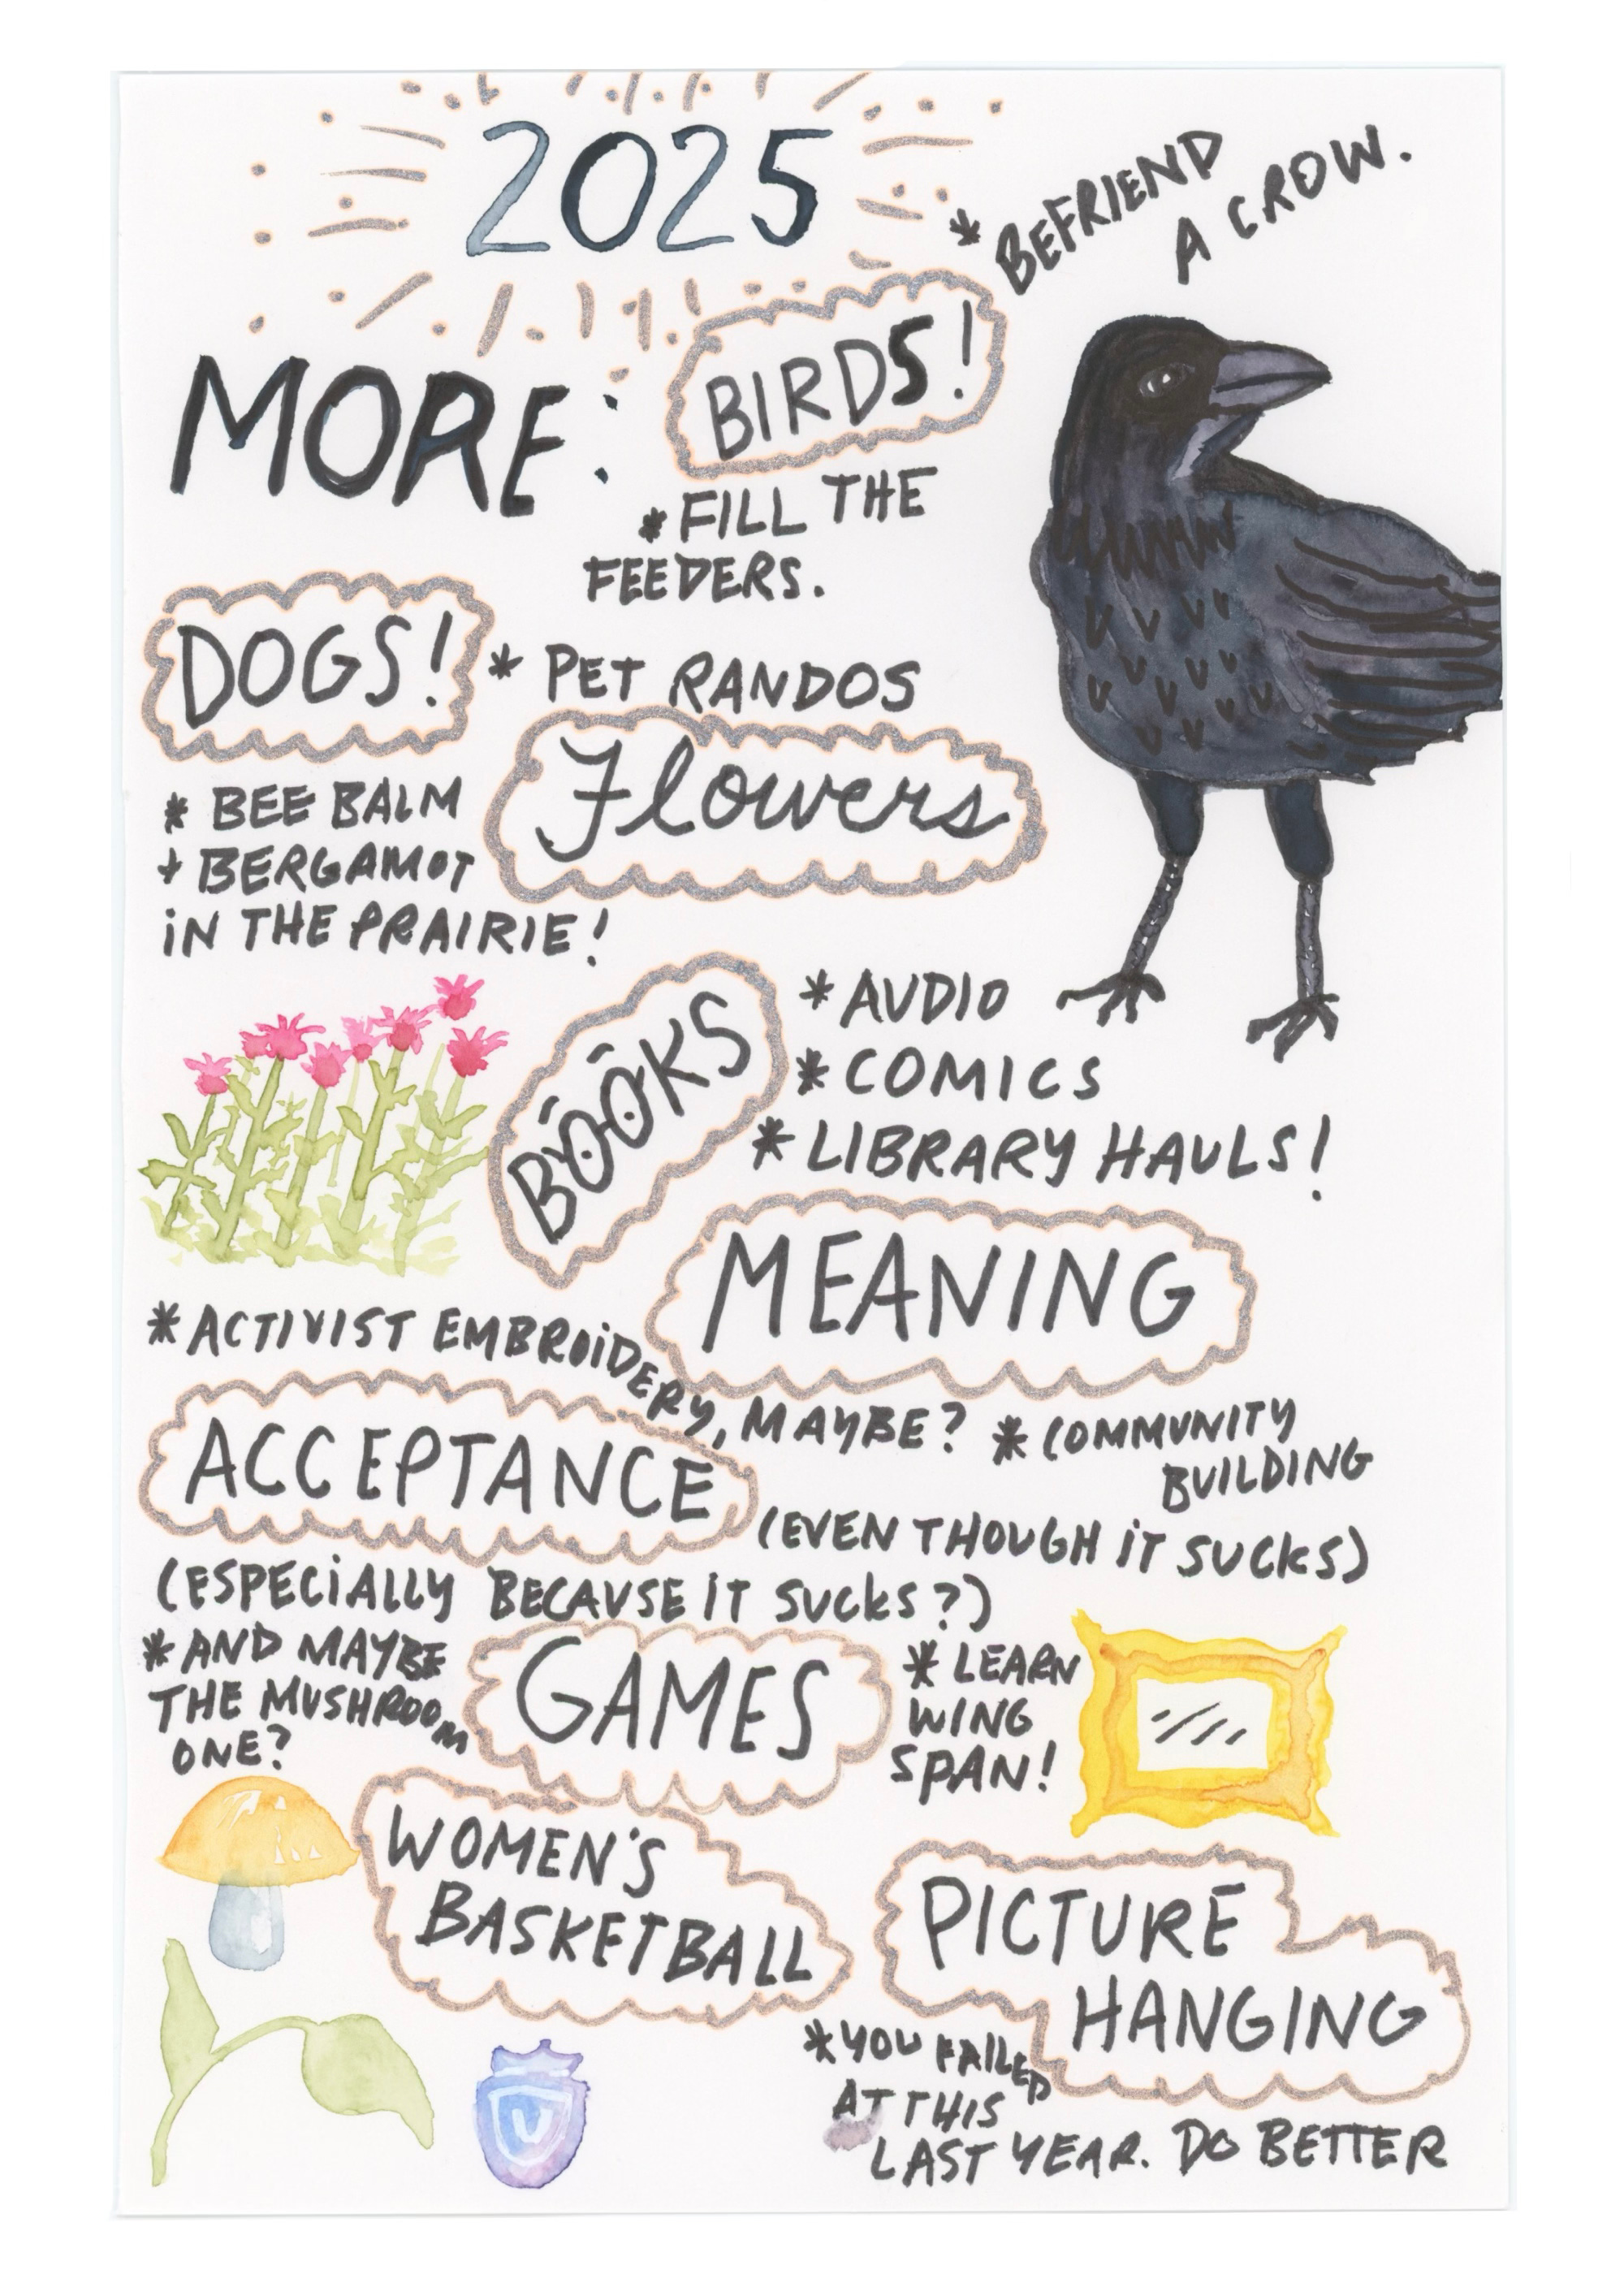 2025
* BEFRIEND
A CROW.
MORE:
BIRDS!
* FILL THE
FEEDERS.
DOGS!
* PET RANDOS
Flowers
* BEE BALM
+ BERGAMOT
IN THE PRAIRIE!
BOOKS
* AUDIO
* COMICS
* LIBRARY HAULS!
MEANING
* ACTIVIST EMBROIDERY, MAYBE?
* COMMUNITY
BUILDING
ACCEPTANCE
(EVEN THOUGH IT SUCKS)
(ESPECIALLY BECAUSE IT SUCKS?)
GAMES
* LEARN
WING
SPAN!
* AND MAYBE
THE MUSHROOM
ONE?
WOMEN'S
BASKETBALL
PICTURE
HANGING
* YOU FAILED
AT THIS
LAST YEAR. DO BETTER